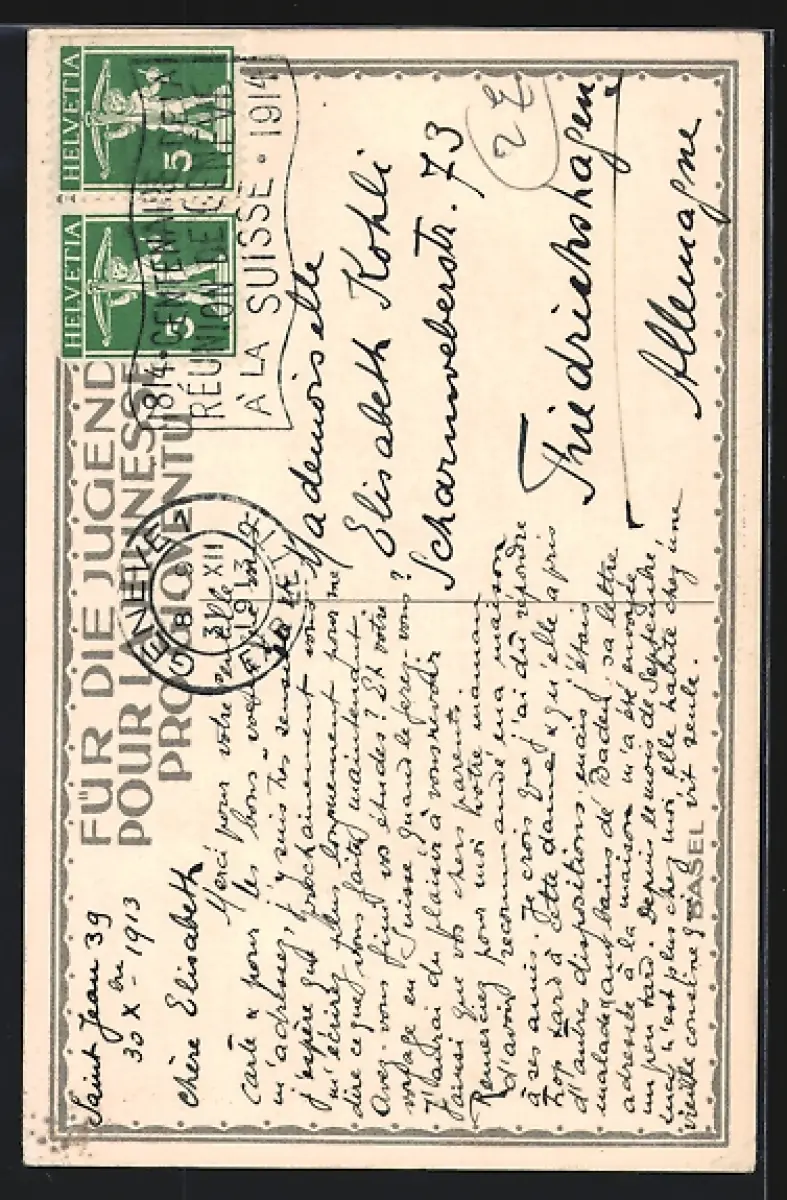 FÜR DIE JUGEND
POUR LA JEUNESSE
PRO JUVENTUTE
HELVETIA
5
HELVETIA
5
1814 · CENTENAIRE DE LA
RÉUNION DE GENÈVE
À LA SUISSE · 1914
GENÈVE
31 XII
27
Saint Jean 39
30 Xbre 1913
Chère Elisabeth
Merci pour votre gentille
carte & pour les bons voeux que vous
m'adressez, j'y suis très sensible
j'espère que prochainement vous
m'écrirez plus longuement pour me
dire ce que vous faites maintenant.
Avez-vous fini vos études? Et votre
voyage en Suisse quand le ferez-vous?
J'aurai du plaisir à vous revoir
ainsi que vos chers parents.
Remerciez pour moi votre maman
d'avoir recommandé ma maison
à ses amis. Je crois que j'ai dû répondre
trop tard à cette dame & qu'elle a pris
d'autres dispositions, mais j'étais
malade aux bains de Baden, sa lettre
adressée à la maison m'a été envoyée
un peu tard. Depuis le mois de Septembre,
n'est plus chez moi elle habite chez une
vieille cousine qui vit seule.
Mademoiselle
Elisabeth Kohli
Scharnweberstr. 73
Friedrichshagen
Allemagne
BASEL